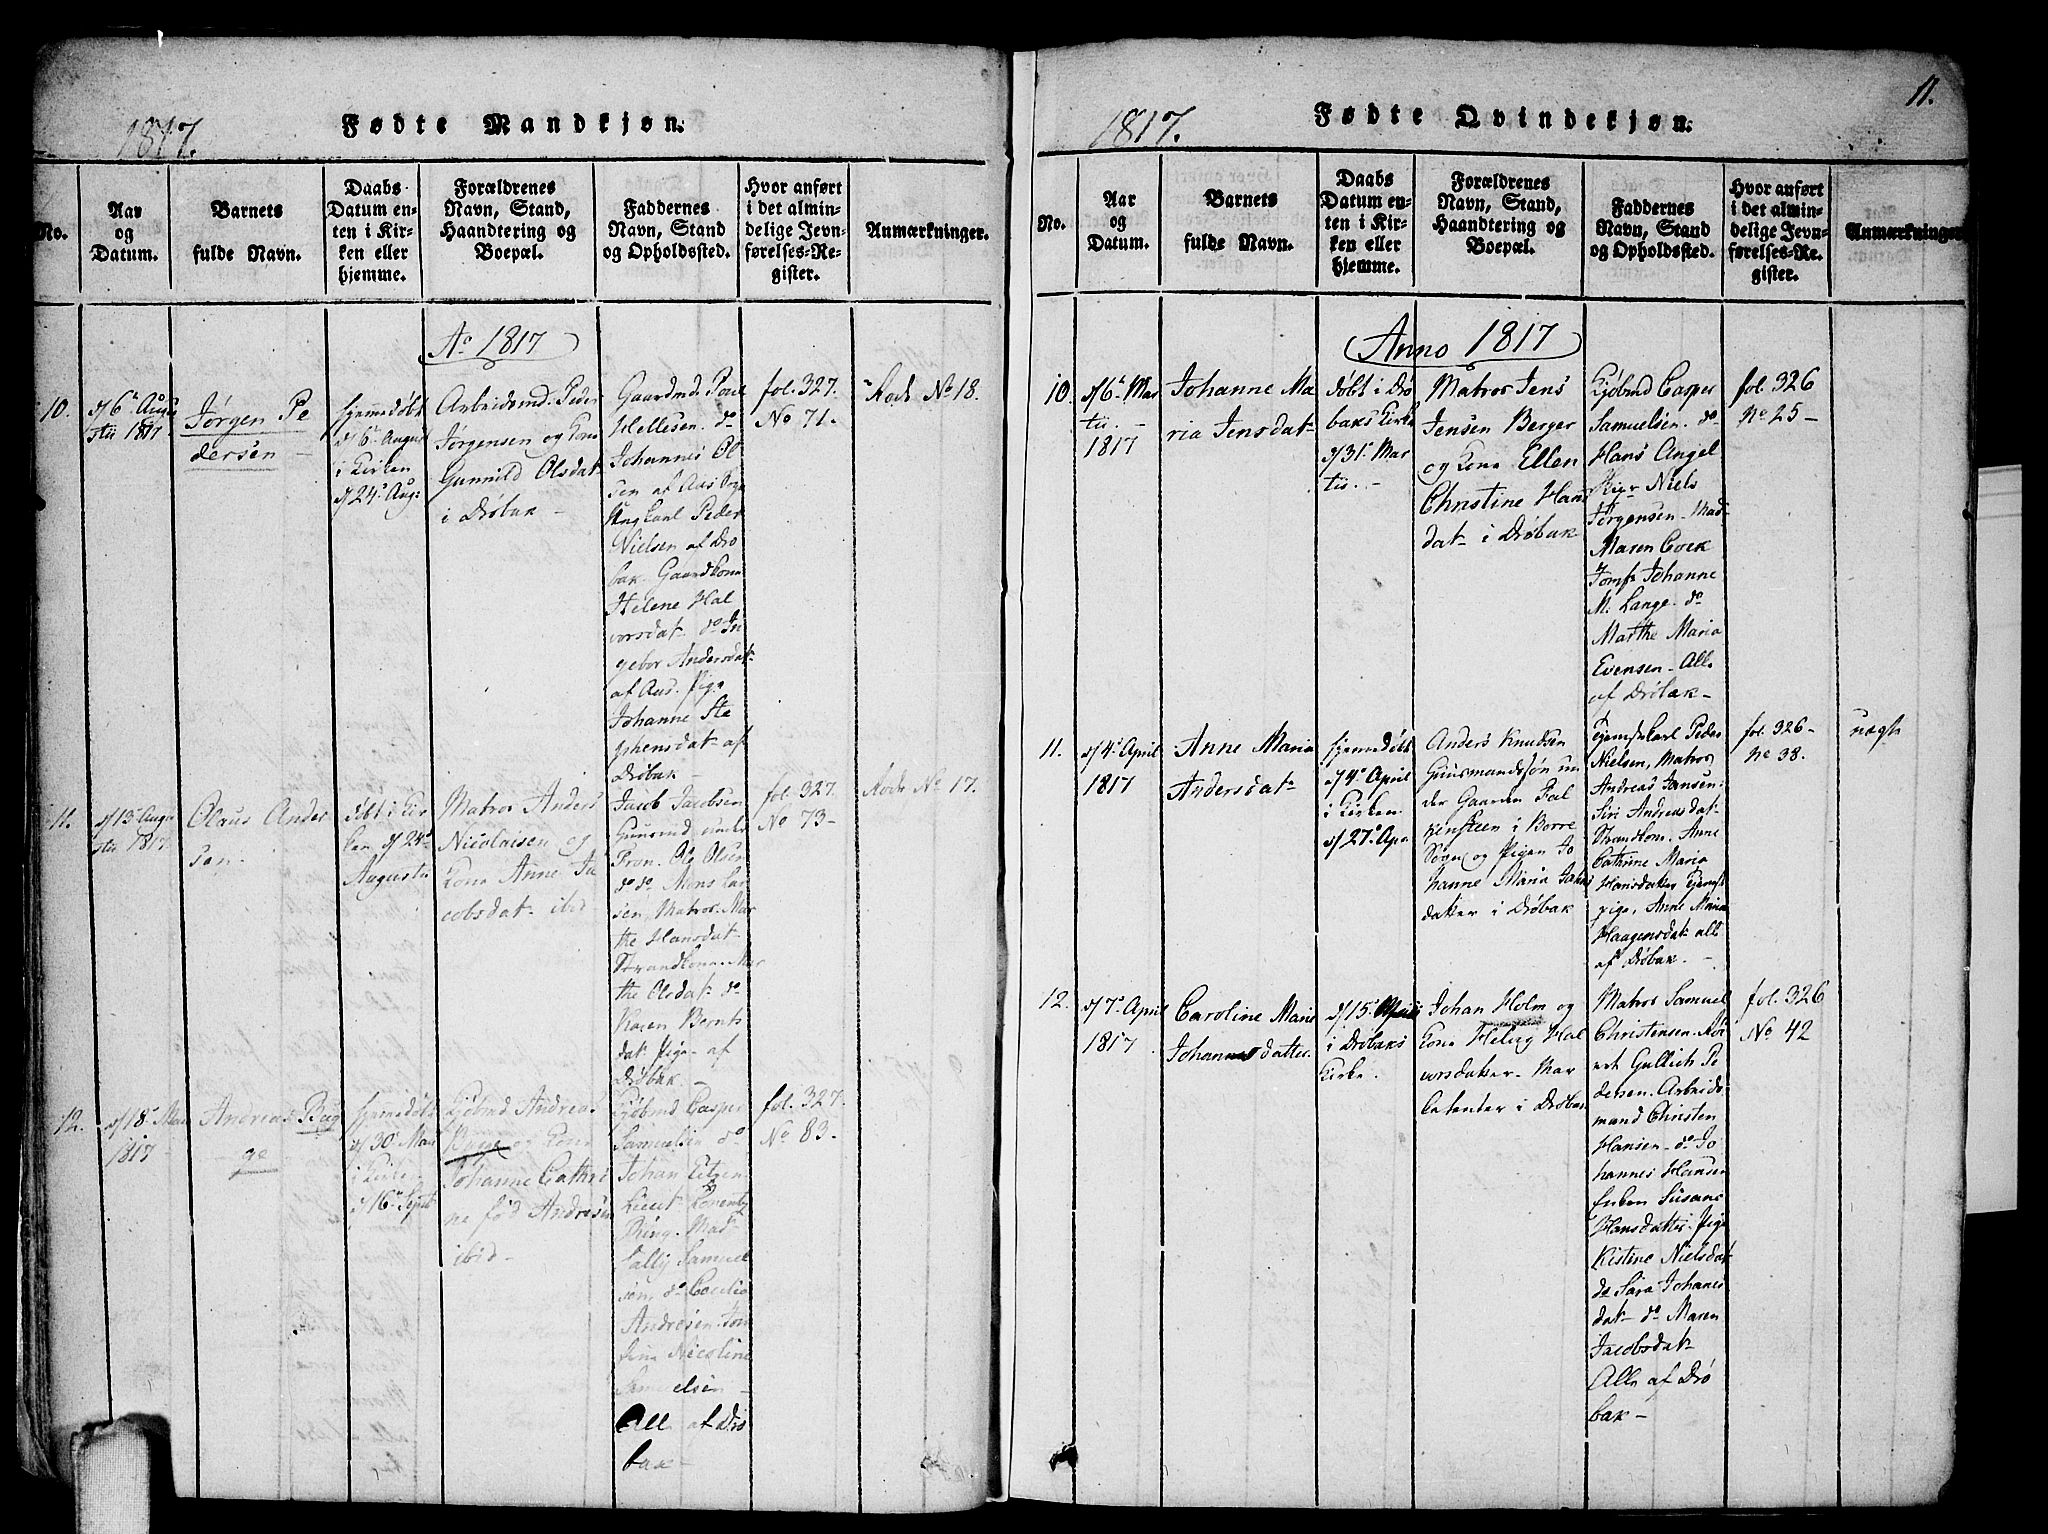 1817.
Fødte Mandkjøn.
No.
Aar
og
Datum.
Barnets
fulde Navn.
Daabs
Datum en-
ten i Kir-
ken eller
hjemme.
Forældrenes
Navn, Stand,
Haandtering og
Boepæl.
Faddernes
Navn, Stand
og Opholdssted.
Hvor anført
i det almin-
delige Jevn-
førelses-Re-
gister.
Anmærkninger.
Ao 1817
10.
d. 6te Augu
stii 1817.
Jørgen Pe
dersen
hjemmedøbt
d 6te August
i Kirken
d 24de Aug:
Arbeidsmd. Peder
Jørgensen og Kone
Gunnild Olsdat
i Drøbak
Gaardmd. Poul
Hellesen. do
Johannes Ol
sen af Aas Sogn
Ung Karl Peder
Nielsen af Drø
bak. Gaardkone
Helene Hal
vorsdat. do In
gebor Andersdat
af Aas. Pige
Johanne Ste
phensdat af
Drøbak
fol. 327.
No 71.
Rode No 18.
11.
d 13de Augu
stii 1817.
Olaus Ander
sen
døbt i Kir
ken d 24de
Augusti
Matros Anders
Nicolaisen og
Kone Anne Ja
cobsdat ibid
Jacob Jacobsen
Huusmd under
Ole Olsen
do do Mons Lar
sen, Matros. Mar
the Hansdat
Strandkone. Mar
the Olsdat do
Karen Bernts
dat Pige af
Drøbak
fol. 327.
No 73
Rode No 17.
12.
d 18de Mai
1817
Andreas Bug
ge
hjemmedøbt
d 30te Mai
i Kirken
d 16de Sept
Kjøbmd Andreas
Bugge og Kone
Johanne Cathri
ne fød Andresen
ibid
Kjøbmd Casper
Samuelsen do
Johan
Lieut
Ring. Mad
Sally Samuel
sen, do Cecilie
Andresen. Jom
fru Nicoline
Samuelsen
Alle af Drø
bak
fol. 327.
No 83.
11.
1817.
Fødte Qvindekjøn.
No.
Aar
og
Datum.
Barnets
fulde Navn.
Daabs
Datum en-
ten i Kir-
ken eller
hjemme.
Forældrenes
Navn, Stand,
Haandtering og
Boepæl.
Faddernes
Navn, Stand
og Opholdssted.
Hvor anført
i det almin-
delige Jevn-
førelses-Re-
gister.
Anmærkninger
Anno 1817
10.
d 6te Mar
tii.
1817
Johanne Ma
ria Jensdat
døbt i Drø
baks Kirke
d 31te Mar
tii.
Matros Jens
Jensen Berger
og Kone Ellen
Christine Hans
dat i Drøbak
Kjøbmd Casper
Samuelsen. do
Hans Angel
Niels
Jørgensen. Mad
Maren Cock
Jomfr Johanne
M. Lange. do
Marthe Maria
Evensen. Alle
af Drøbak
fol. 326
No 25
11.
d 4de April
1817
Anne Maria
Andersdat
hjemmedøbt
d 4de April
i Kirken
d 27de Apr.
Anders Knudsen
Huusmandssøn un
der Gaarden Fal
kensteen i Borre
Sogn og Pigen Jo
hanne Maria
datter i Drøbak
Peder
Nielsen, Matros
Andreas Jansen.
Siri Andreasdat
Strandkone. Anne
Catrine Maria
Hansdatter
pige, Anne Maria
Haagensdat alle
af Drøbak.
fol. 326
No 38.
uægte
12.
d 7de April
1817
Caroline Marie
Johannesdatter.
d 15de
i Drøbaks
Kirke.
Johan Holm og
Kone Helvig Hal
vorsdatter. Mar
ketenter i Drøbak
Matros Samuel
Christensen.
Gullich Pe
dersen. Arbeids
mand Christen
Hansen do Jo
hannes Hansen
Enken Susane
Hansdatter. Pige
Kistine Nielsdat
do Sara Johanes
dat do Maren
Jacobsdat
Alle af Drø
bak
fol. 326
No 42